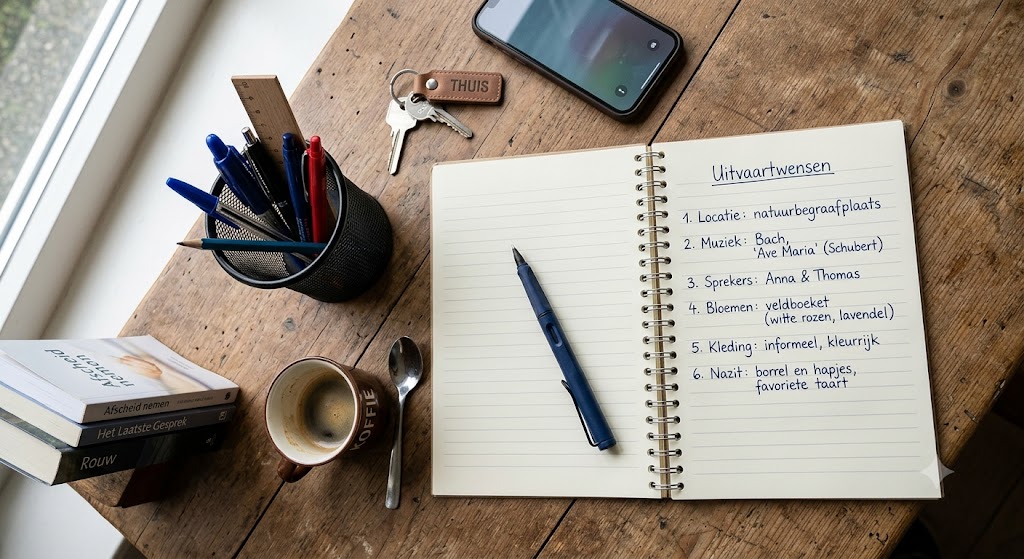 THUIS
Uitvaartwensen
1. Locatie: natuurbegraafplaats
2. Muziek: Bach,
'Ave Maria' (Schubert)
3. Sprekers: Anna & Thomas
4. Bloemen: veldboeket
(witte rozen, lavendel)
5. Kleding: informeel, kleurrijk
6. Nazit: borrel en hapjes,
favoriete taart
Afscheid
nemen
Afscheid nemen
Het Laatste Gesprek
Rouw
KOFFIE